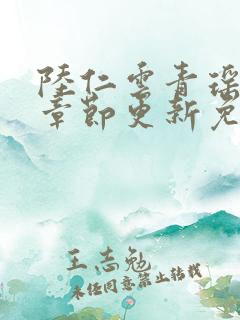 陸仁雲青瑶
章節更新免
王志勉
未经同意禁止转载